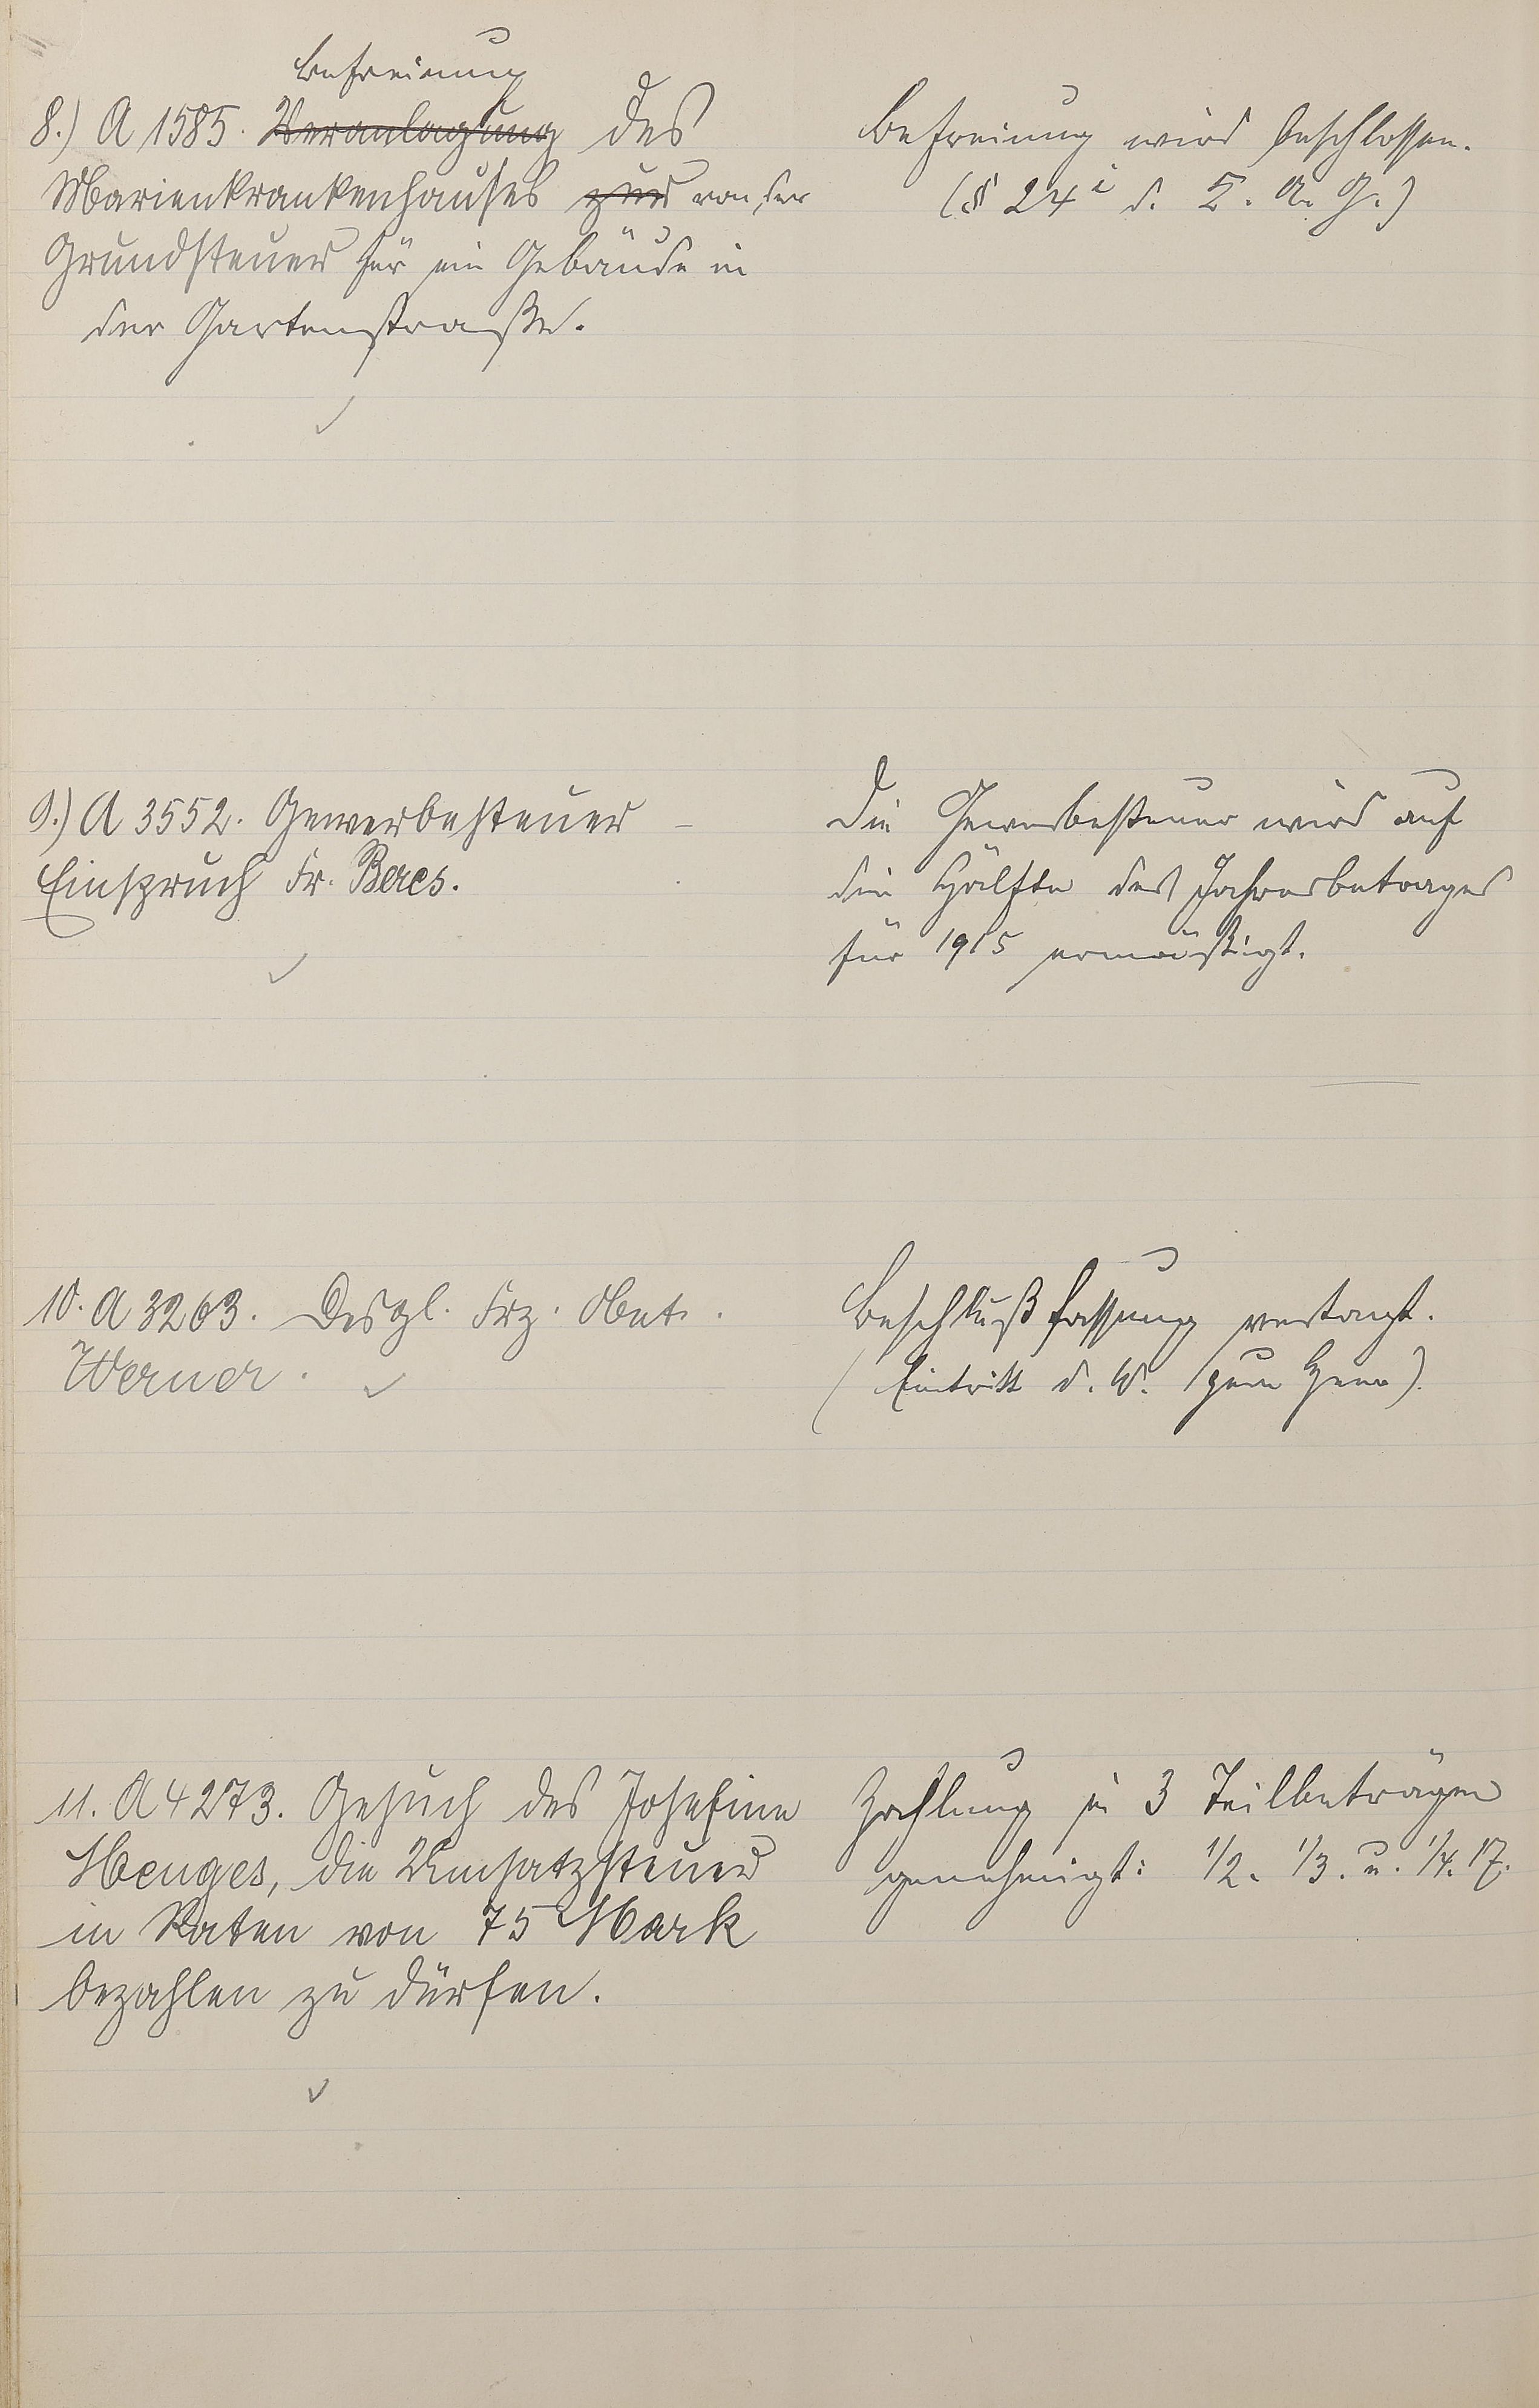 Befreiung
8.) A 1585. Veranlagung des
Marienkrankenhauses zur von der
Grundsteuer für ein Gebäude in
der Gartenstraße.
Befreiung wird beschlossen.
(§ 24 i d. K. A. G.)
9.) A 3552. Gewerbesteuer –
Einspruch Fr. Beres.
Die Gewerbesteuer wird auf
die Hälfte des Jahresbetrages
für 1915 ermäßigt.
10. A 3263. Desgl. Frz.
Werner.
Beschlußfassung vertagt.
(Eintritt d. W. zum Heer).
11. A 4273. Gesuch des Josefine
Henges, die Umsatzsteuer
in Raten von 75 Mark
bezahlen zu dürfen.
Zahlung in 3 Teilbeträgen
genehmigt: 1/2. 1/3. u. 1/4. 17.